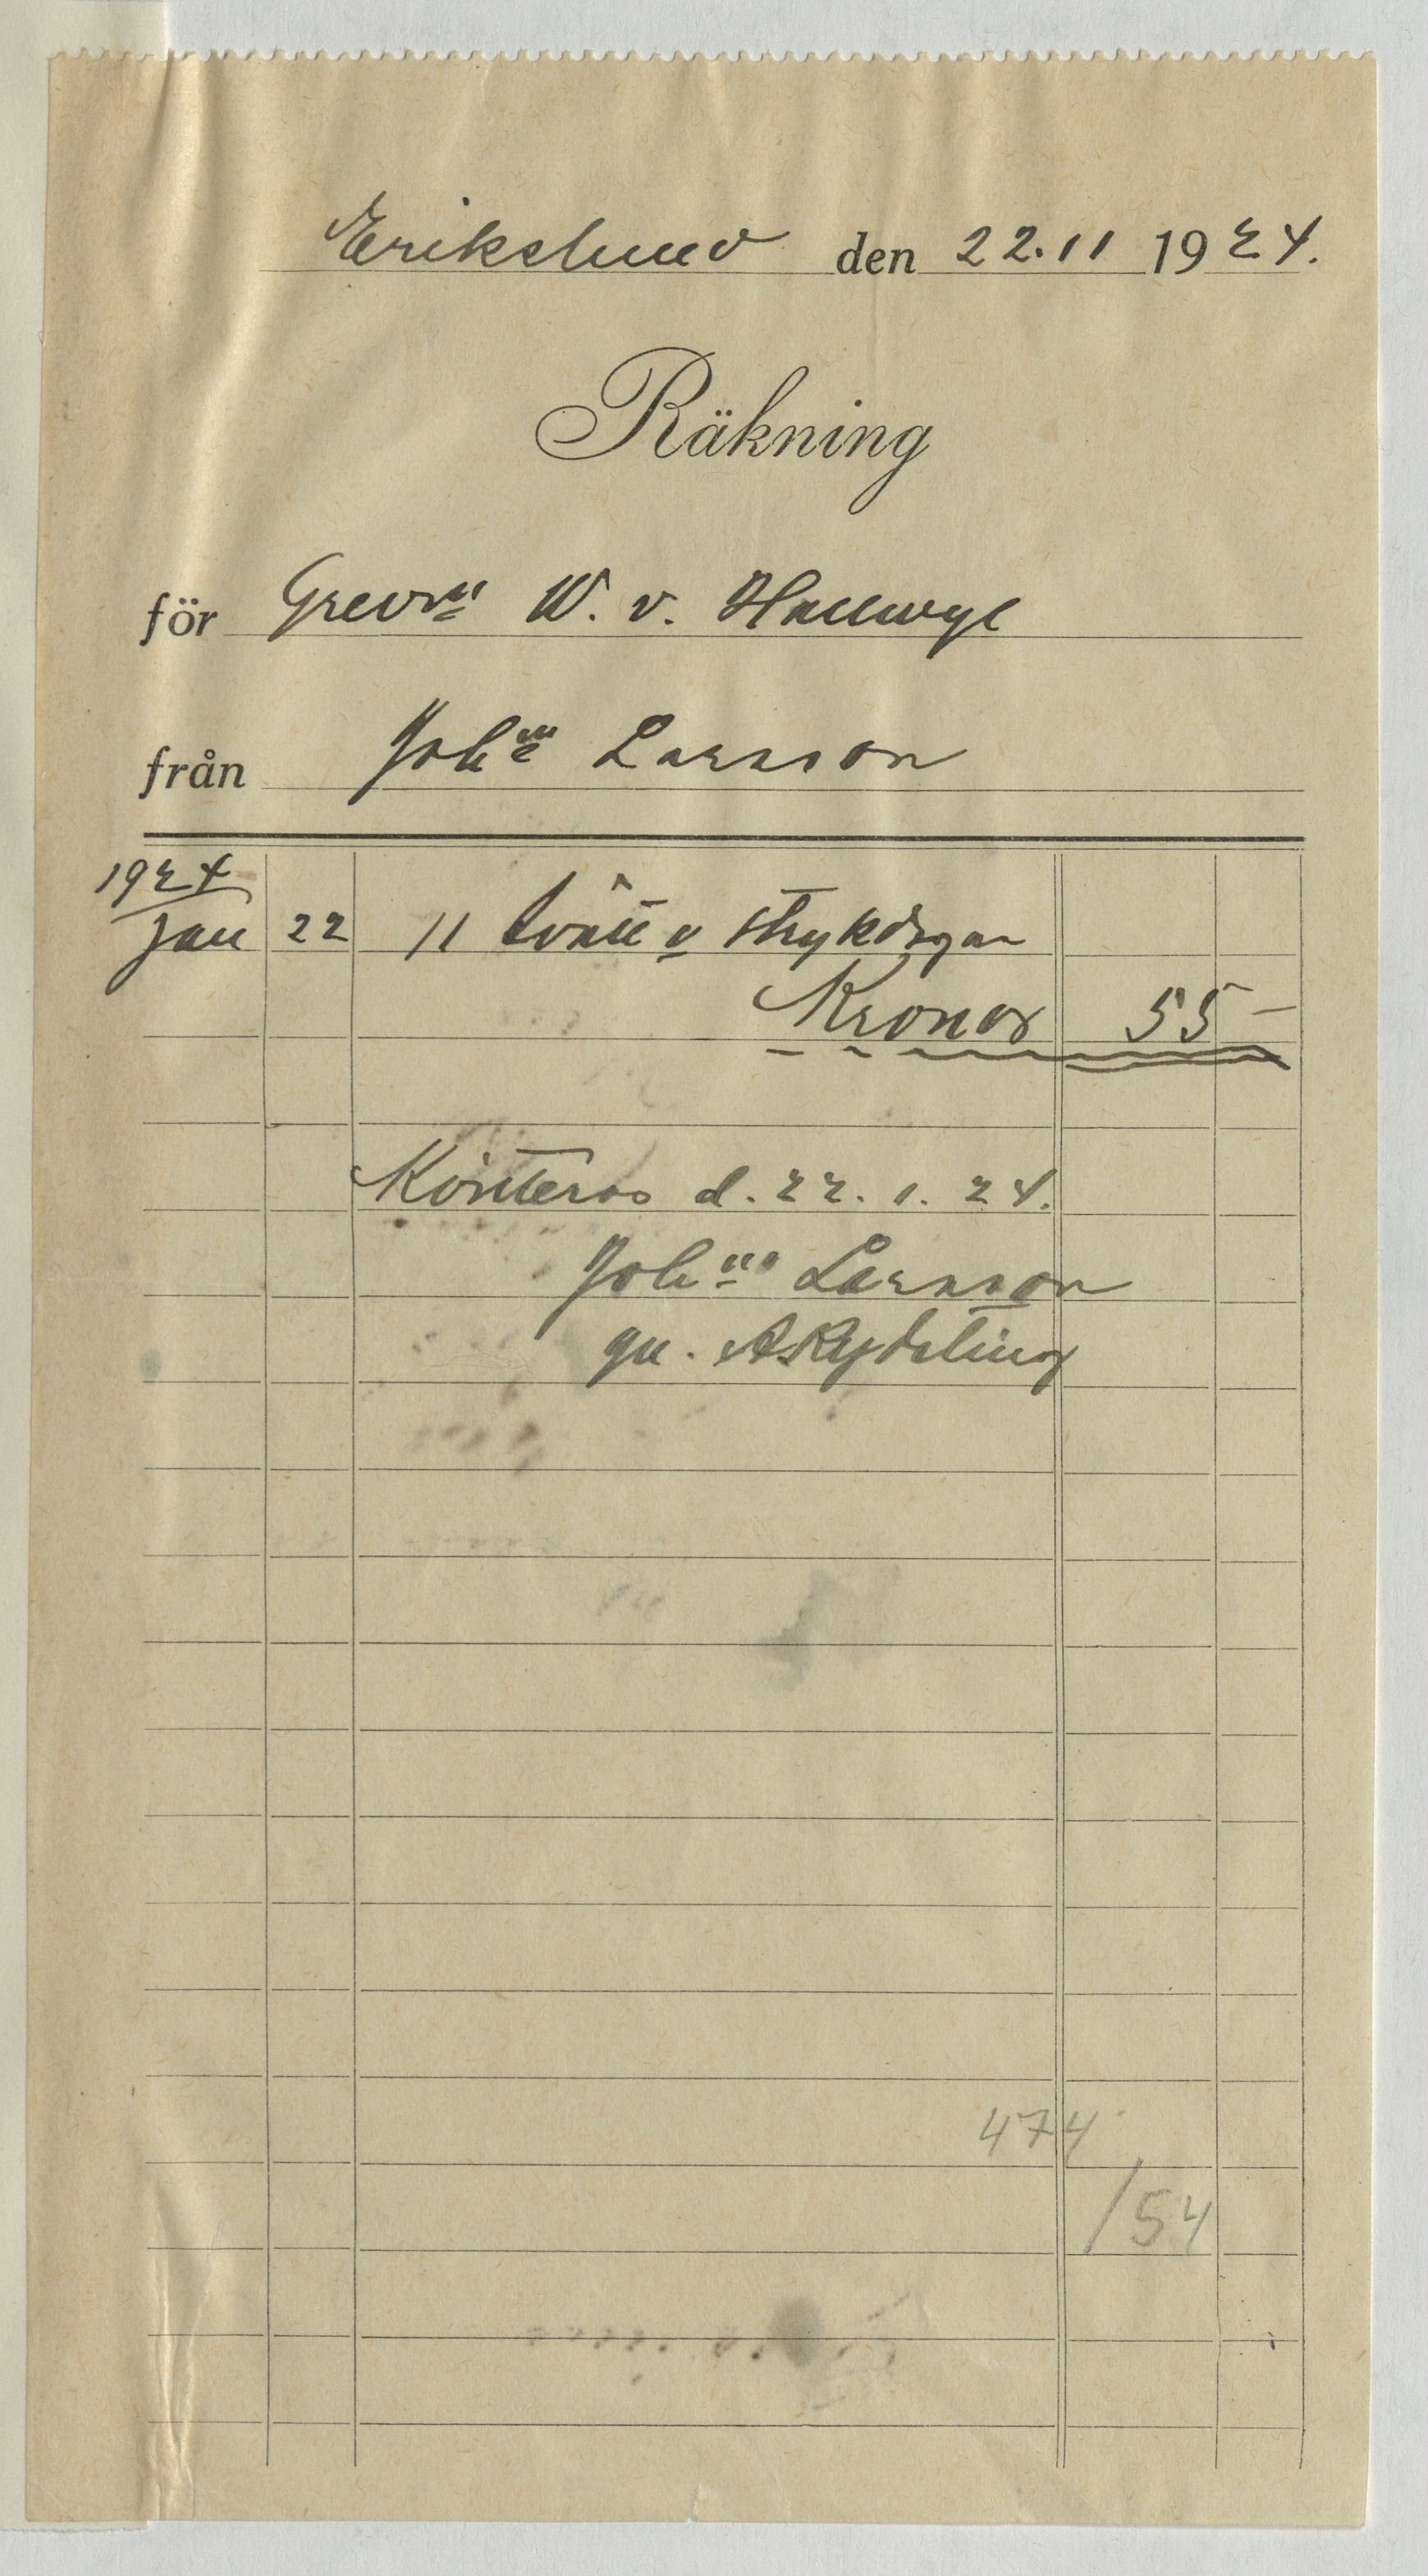 Erikslund den 22.11 1924.
Räkning
för Grevn W. v. Hallwyl
från Joh:a Larsson
1924
Jan 22 11 tvätt o strykdagar
Kronor 55 –
Kvitteras d. 22. 1. 24.
Joh:a Larsson
gm.
474
/54